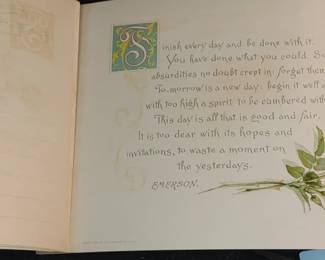 Finish every day and be done with it.
You have done what you could. So
absurdities no doubt crept in; forget them
To-morrow is a new day: begin it well a
with too high a spirit to be cumbered with
This day is all that is good and fair.
It is too dear with its hopes and
invitations, to waste a moment on
the yesterdays.
EMERSON.